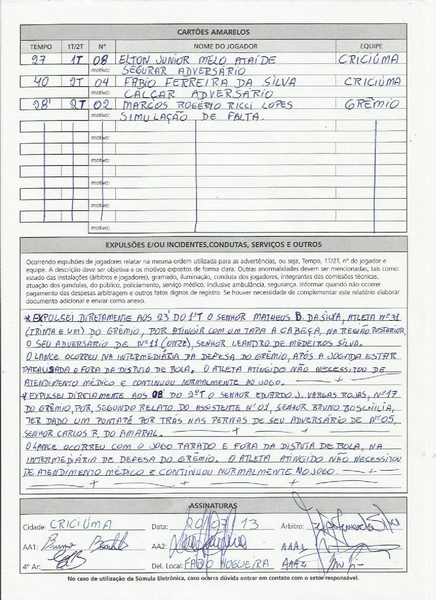 CARTÕES AMARELOS
TEMPO 1T/2T Nº NOME DO JOGADOR EQUIPE
27 1T 08 ELTON JUNIOR MELO ATAIDE CRICIÚMA
motivo: SEGURAR ADVERSÁRIO
40 2T 04 FABIO FERREIRA DA SILVA CRICIÚMA
motivo: CALÇAR ADVERSARIO
28' 2T 02 MARCOS ROGÉRIO RICCI LOPES GRÊMIO
motivo: SIMULAÇÃO DE FALTA.
motivo:
motivo:
motivo:
motivo:
motivo:
EXPULSÕES E/OU INCIDENTES,CONDUTAS, SERVIÇOS E OUTROS
Ocorrendo expulsões de jogadores relatar na mesma ordem utilizada para as advertências, ou seja, Tempo, 1T/2T, nº do jogador e
equipe. A descrição deve ser objetiva e os motivos expostos de forma clara. Outras anormalidades devem ser mencionadas, tais como:
estado das instalações (árbitros e jogadores), gramado, iluminação, conduta dos jogadores, integrantes das comissões técnicas,
atuação dos gandulas, do público, policiamento, serviço médico, inclusive ambulância, segurança. Informar caso não ocorrer o
pagamento das despesas arbitragem e outros fatos dignos de registro. Se houver necessidade de complementar este relatório elaborar
documento adicional e enviar como anexo.
*EXPULSEI DIRETAMENTE AOS 23' DO 1ºT O SENHOR MATHEUS B. DA SILVA, ATLETA Nº31
(TRINTA E UM) DO GRÊMIO, POR ATINGIR COM UM TAPA A CABEÇA, NA REGIÃO POSTERIOR,
O SEU ADVERSARIO DE Nº11 (ONZE), SENHOR LEANDRO DE MEDEIROS SILVA.
O LANCE OCORREU NA INTERMEDIÁRIA DA DEFESA DO GRÊMIO, APÓS A JOGADA ESTAR
PARALISADA E FORA DA DISPUTA DE BOLA. O ATLETA ATINGIDO NÃO NECESSITOU DE
ATENDIMENTO MÉDICO E CONTINUOU NORMALMENTE AO JOGO.
*EXPULSEI DIRETAMENTE AOS 08 DO 2ºT O SENHOR EDUARDO J. VARGAS ROJAS, Nº17
DO GRÊMIO, POR, SEGUNDO RELATO DO ASSISTENTE Nº01, SENHOR BRUNO BOSCHILIA,
TER DADO UM PONTAPÉ POR TRÁS NAS PERNAS DE SEU ADVERSÁRIO DE Nº05,
SENHOR CARLOS R. DO AMARAL.
O LANCE OCORREU COM O JOGO PARADO E FORA DA DISPUTA DE BOLA, NA
INTERMEDIÁRIA DE DEFESA DO GRÊMIO. O ATLETA ATINGIDO NÃO NECESSITOU
DE ATENDIMENTO MÉDICO E CONTINUOU NORMALMENTE NO JOGO.
ASSINATURAS
Cidade: CRICIÚMA Data: 20/07/13 Árbitro:
AA1: AA2: AAA1
4º Ar: Del. Local: FABIO NOGUEIRA AAA2
No caso de utilização da Súmula Eletrônica, caso ocorra dúvida entrar em contato com o setor responsável.